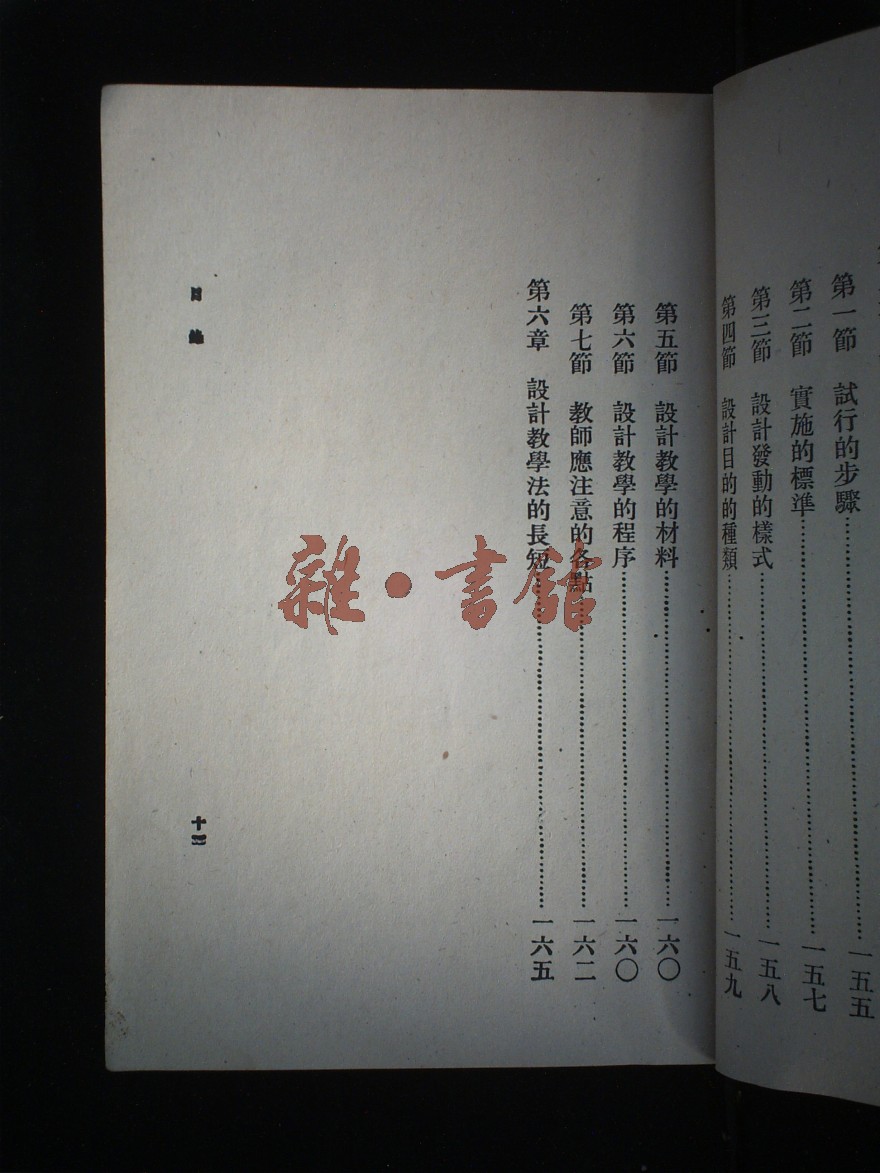 第一節　試行的步驟…………一五五
第二節　實施的標準…………一五七
第三節　設計發動的樣式…………一五八
第四節　設計目的的種類…………一五九
第五節　設計教學的材料…………一六〇
第六節　設計教學的程序…………一六〇
第七節　教師應注意的各點…………一六二
第六章　設計教學法的長短…………一六五
目錄
雜·書館